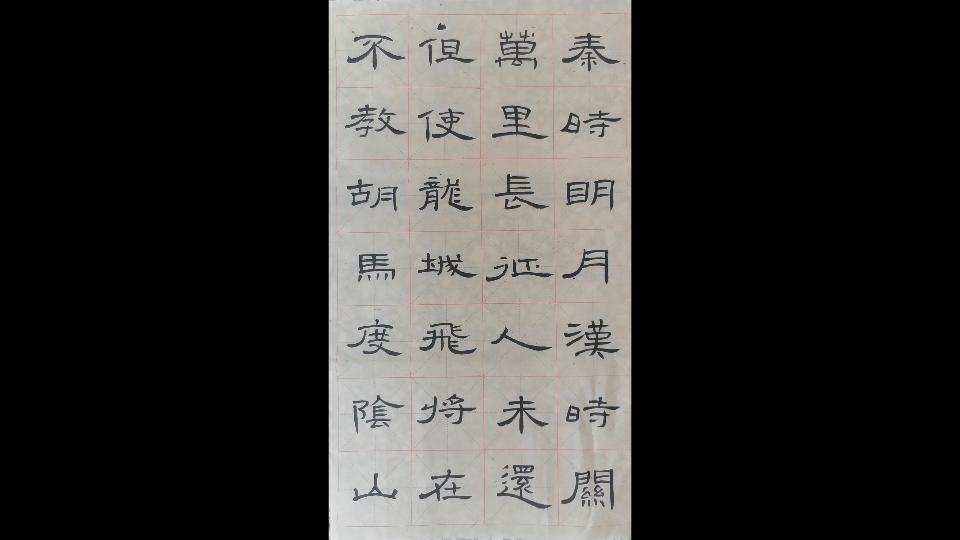 秦時明月漢時關
萬里長征人未還
但使龍城飛将在
不教胡馬度陰山